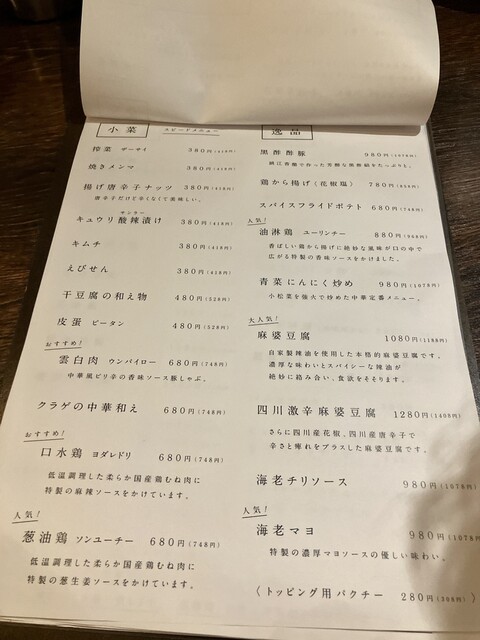 小菜 スピードメニュー
搾菜 ザーサイ 380円(418円)
焼きメンマ 380円(418円)
揚げ唐辛子ナッツ 380円(418円)
唐辛子だけど辛くなくて美味しい。
キュウリ酸辣漬け 380円(418円)
キムチ 380円(418円)
えびせん 380円(418円)
干豆腐の和え物 480円(528円)
皮蛋 ピータン 480円(528円)
おすすめ!
雲白肉 ウンパイロー 680円(748円)
中華風ピリ辛の香味ソース豚しゃぶ。
クラゲの中華和え 680円(748円)
おすすめ!
口水鶏 ヨダレドリ 680円(748円)
低温調理した柔らか国産鶏むね肉に
特製の麻辣ソースをかけています。
人気!
葱油鶏 ソンユーチー 680円(748円)
低温調理した柔らか国産鶏むね肉に
特製の葱生姜ソースをかけています。
逸品
黒酢酢豚 980円(1078円)
鎮江香酢で作った芳醇な黒酢餡をたっぷりと。
鶏から揚げ(花椒塩) 780円(858円)
スパイスフライドポテト 680円(748円)
人気!
油淋鶏 ユーリンチー 880円(968円)
香ばしい鶏から揚げに絶妙な風味が口の中で
広がる特製の香味ソースをかけました。
青菜にんにく炒め 980円(1078円)
小松菜を強火で炒めた中華定番メニュー。
大人気!
麻婆豆腐 1080円(1188円)
自家製辣油を使用した本格的麻婆豆腐です。
濃厚な味わいとスパイシーな辣油が
絶妙に絡み合い、食欲をそそります。
四川激辛麻婆豆腐 1280円(1408円)
さらに四川産花椒、四川産唐辛子で
辛さと痺れをプラスした麻婆豆腐です。
海老チリソース 980円(1078円)
人気!
海老マヨ 980円(1078円
特製の濃厚マヨソースの優しい味わい。
〈トッピング用パクチー 280円(308円)〉